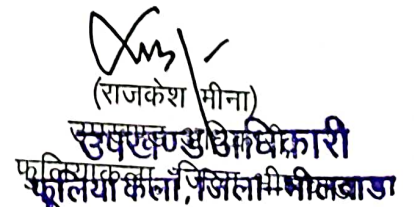 (राजकेश मीना)
उपखण्ड अधिकारी
फूलिया कलां, जिला भीलवाडा